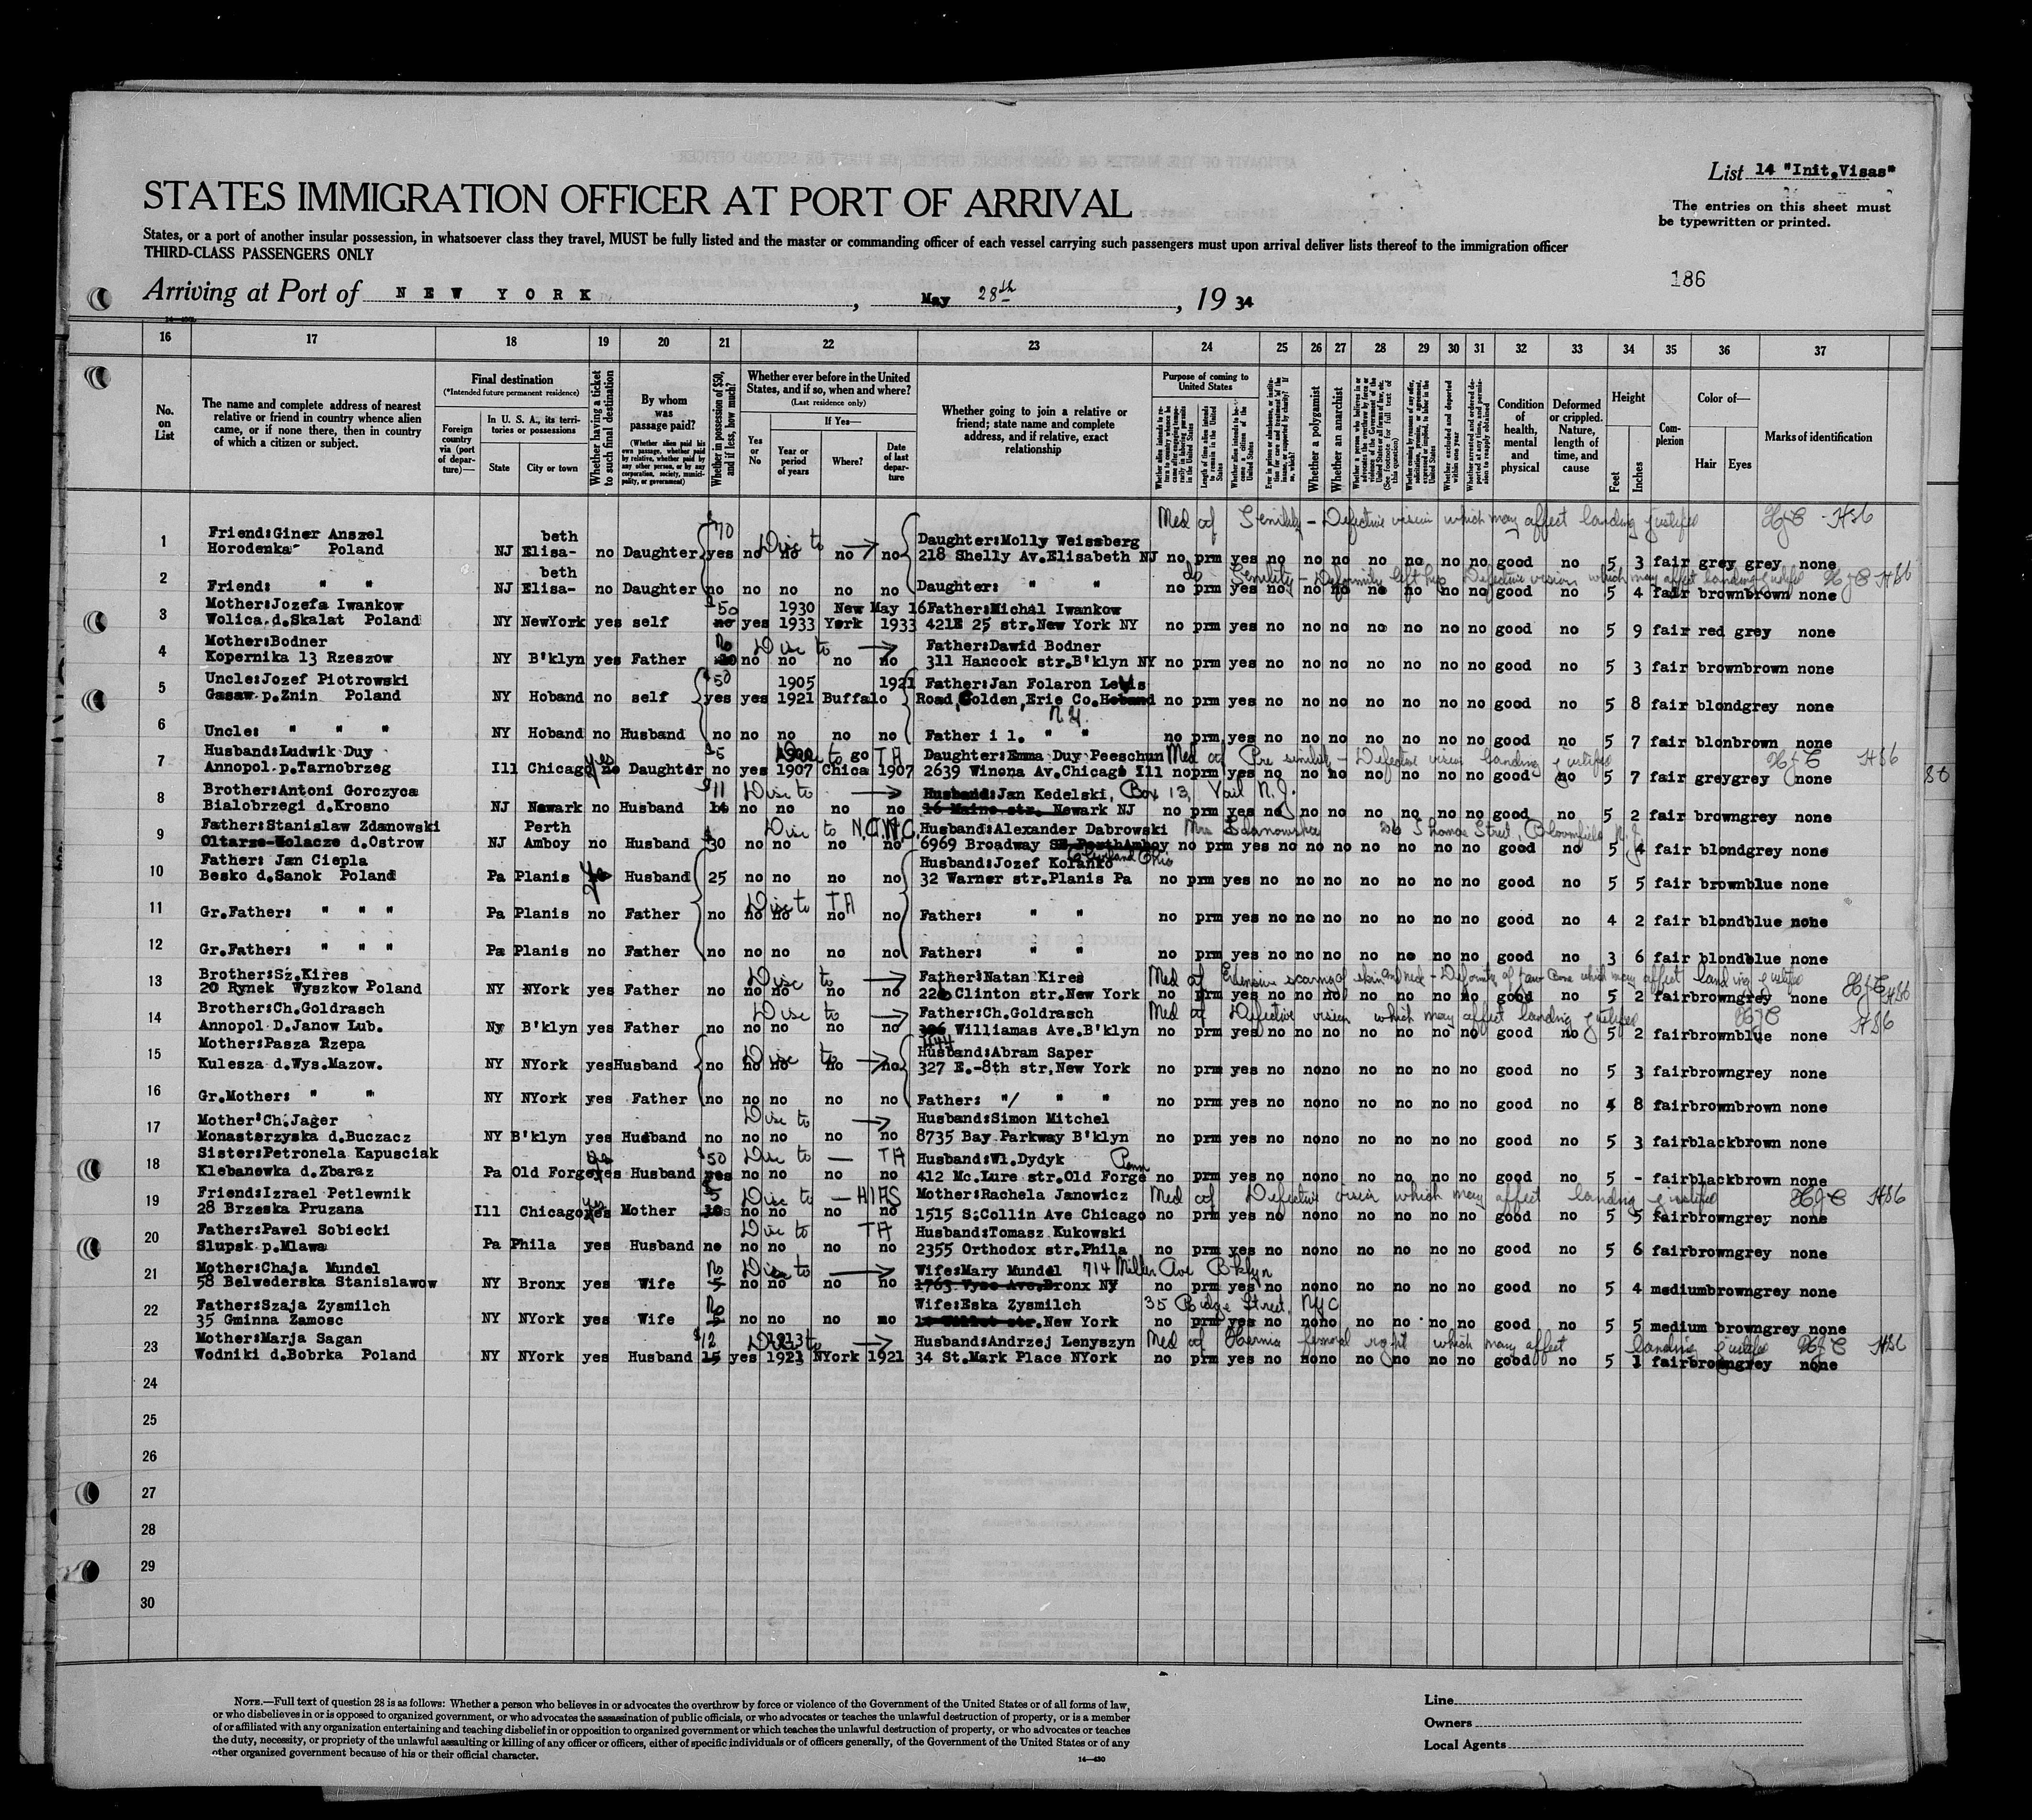 List 14 "Init.Visas"
STATES IMMIGRATION OFFICER AT PORT OF ARRIVAL
The entries on this sheet must
be typewritten or printed.
States, or a port of another insular possession, in whatsoever class they travel, MUST be fully listed and the master or commanding officer of each vessel carrying such passengers must upon arrival deliver lists thereof to the immigration officer
THIRD-CLASS PASSENGERS ONLY
186
Arriving at Port of N E W Y O R K , May 28th , 19 34
16 17 18 19 20 21 22 23 24 25 26 27 28 29 30 31 32 33 34 35 36 37
No. on List
The name and complete address of nearest relative or friend in country whence alien came, or if none there, then in country of which a citizen or subject.
Final destination
(*Intended future permanent residence)
Foreign country via (port of departure)—
In U. S. A., its territories or possessions
State
City or town
Whether having a ticket to such final destination
By whom was passage paid?
(Whether alien paid his own passage, whether paid by relative, whether paid by any other person, or by any corporation, society, municipality, or government)
Whether in possession of $50, and if less, how much?
Whether ever before in the United States, and if so, when and where?
(Last residence only)
If Yes—
Yes or No
Year or period of years
Where?
Date of last departure
Whether going to join a relative or friend; state name and complete address, and if relative, exact relationship
Purpose of coming to United States
Whether a polygamist
Whether an anarchist
Condition of health, mental and physical
Deformed or crippled. Nature, length of time, and cause
Height
Feet
Inches
Complexion
Color of—
Hair
Eyes
Marks of identification
Med cf Senility - Defective vision which may affect landing justified
1 Friend:Giner Anszel beth $70 Daughter:Molly Weissberg
Horodenka Poland NJ Elisa- no Daughter yes no no no no 218 Shelly Av.Elisabeth NJ no prm yes no no no no no no no good no 5 3 fair grey grey none
2 beth do Senility - Deformity left hip Defective vision which may affect landing justified
Friend: " " NJ Elisa- no Daughter no no no no no Daughter: " " no prm yes no no no no no no no good no 5 4 fair brown brown none
3 Mother:Jozefa Iwankow $50 1930 New May 16 Father:Michal Iwankow
Wolica.d.Skalat Poland NY NewYork yes self no yes 1933 York 1933 421E 25 str.New York NY no prm yes no no no no no no no good no 5 9 fair red grey none
4 Mother:Bodner No Disc to Father:Dawid Bodner
Kopernika 13 Rzeszow NY B'klyn yes Father 20 no no no no 311 Hancock str.B'klyn NY no prm yes no no no no no no no good no 5 3 fair brown brown none
5 Uncle:Jozef Piotrowski $50 1905 1921 Father:Jan Folaron Lewis
Gasaw.p.Znin Poland NY Hoband no self yes yes 1921 Buffalo Road,Colden,Erie Co.Hoband no prm yes no no no no no no no good no 5 8 fair blond grey none
N.Y.
6 Uncle: " " " NY Hoband no Husband no no no no no Father i l. " " no prm yes no no no no no no no good no 5 7 fair blon brown none
7 Husband:Ludwik Duy yes $5 to go TA Daughter:Emma Duy Peeschun Med cf Defective vision landing justified
Annopol.p.Tarnobrzeg Ill Chicago no Daughter no yes 1907 Chica 1907 2639 Winona Av.Chicago Ill no prm yes no no no no no no no good no 5 7 fair grey grey none
8 Brother:Antoni Gorczyca $11 Disc to Husband:Jan Kedelski, Box 13, Vail N.J.
Bialobrzegi d.Krosno NJ Newark no Husband no no no no 16 Maine str. Newark NJ no prm yes no no no no no no no good no 5 2 fair brown grey none
9 Father:Stanislaw Zdanowski Perth $ Disc to N.C.W.C. Husband:Alexander Dabrowski Mrs Zdanowska 26 Thomas Street, Bloomfield N.J.
Oltarze-Wolacze d.Ostrow NJ Amboy no Husband 30 no no no no 6969 Broadway no prm yes no no no no no no no good no 5 4 fair blond grey none
Cleveland Ohio
10 Father: Jan Ciepla yes Husband:Jozef Kolanko
Besko d.Sanok Poland Pa Planis Husband 25 no no no no 32 Warner str.Planis Pa no prm yes no no no no no no no good no 5 5 fair brown blue none
11 Disc to TA
Gr.Father: " " " Pa Planis no Father no no no no no Father: " " no prm yes no no no no no no no good no 4 2 fair blond blue none
12 Gr.Father: " " " Pa Planis no Father no no no no no Father: " " no prm yes no no no no no no no good no 3 6 fair blond blue none
13 Brother:Sz.Kires Disc to Father:Natan Kires Med cf Extensive scarring of skin and neck - Deformity of jaw bone which may affect landing justified
20 Rynek Wyszkow Poland NY NYork yes Father no no no no no 226 Clinton str.New York no prm yes no no no no no no no good no 5 2 fair brown grey none
14 Brother:Ch.Goldrasch Disc to Father:Ch.Goldrasch Med cf Defective vision which may affect landing justified
Annopol D.Janow Lub. Ny B'klyn yes Father no no no no no 306 Williamas Ave.B'klyn no prm yes no no no no no no no good no 5 2 fair brown blue none
444
15 Mother:Pasza Rzepa Disc to Husband:Abram Saper
Kulesza d.Wys.Mazow. NY NYork yes Husband no no no no no 327 E.-8th str,New York no prm yes no no no no no no no good no 5 3 fair brown grey none
16 Gr.Mother: " " NY NYork yes Father no no no no no Father: " " " no prm yes no no no no no no no good no 4 8 fair brown brown none
17 Mother:Ch.Jager Disc to Husband:Simon Mitchel
Monasterzyska d.Buczacz NY B'klyn yes Husband no no no no no 8735 Bay Parkway B'klyn no prm yes no no no no no no no good no 5 3 fair black brown none
18 Sister:Petronela Kapusciak yes $50 Disc to — TA Husband:Wl.Dydyk Penn
Klebanowka d.Zbaraz Pa Old Forge yes Husband yes no no no no 412 Mc.Lure str.Old Forge no prm yes no no no no no no no good no 5 - fair black brown none
19 Friend:Izrael Petlewnik yes 5 Disc to — HIAS Mother:Rachela Janowicz Med cf Defective vision which may affect landing justified
28 Brzeska Pruzana Ill Chicago yes Mother no no no no 1515 S.Collin Ave Chicago no prm yes no no no no no no no good no 5 5 fair brown grey none
20 Father:Pawel Sobiecki Disc to TA Husband:Tomasz Kukowski
Slupsk p.Mlawa Pa Phila yes Husband no no no no no 2355 Orthodox str.Phila no prm yes no no no no no no no good no 5 6 fair brown grey none
21 Mother:Chaja Mundel No Disc to Wife:Mary Mundel 714 Miller Ave Bklyn
58 Belwederska Stanislawow NY Bronx yes Wife 5 no no no no 1763 Vyse Ave.Bronx NY no prm yes no no no no no no no good no 5 4 medium brown grey none
22 Father:Szaja Zysmilch No Wife:Eska Zysmilch 35 Ridge Street, NYC
35 Gminna Zamosc NY NYork yes Wife no no no no str.New York no prm yes no no no no no no no good no 5 5 medium brown grey none
23 Mother:Marja Sagan $12 1913 Disc to Husband:Andrzej Lenyszyn Med cf Hernia femoral right which may affect landing justified
Wodniki d.Bobrka Poland NY NYork yes Husband 15 yes 1921 NYork 1921 34 St.Mark Place NYork no prm yes no no no no no no no good no 5 1 fair brown grey none
24
25
26
27
28
29
30
NOTE.—Full text of question 28 is as follows: Whether a person who believes in or advocates the overthrow by force or violence of the Government of the United States or of all forms of law,
or who disbelieves in or is opposed to organized government, or who advocates the assassination of public officials, or who advocates or teaches the unlawful destruction of property, or is a member
of or affiliated with any organization entertaining and teaching disbelief in or opposition to organized government or which teaches the unlawful destruction of property, or who advocates or teaches
the duty, necessity, or propriety of the unlawful assaulting or killing of any officer or officers, either of specific individuals or of officers generally, of the Government of the United States or of any
other organized government because of his or their official character.
14—430
Line
Owners
Local Agents